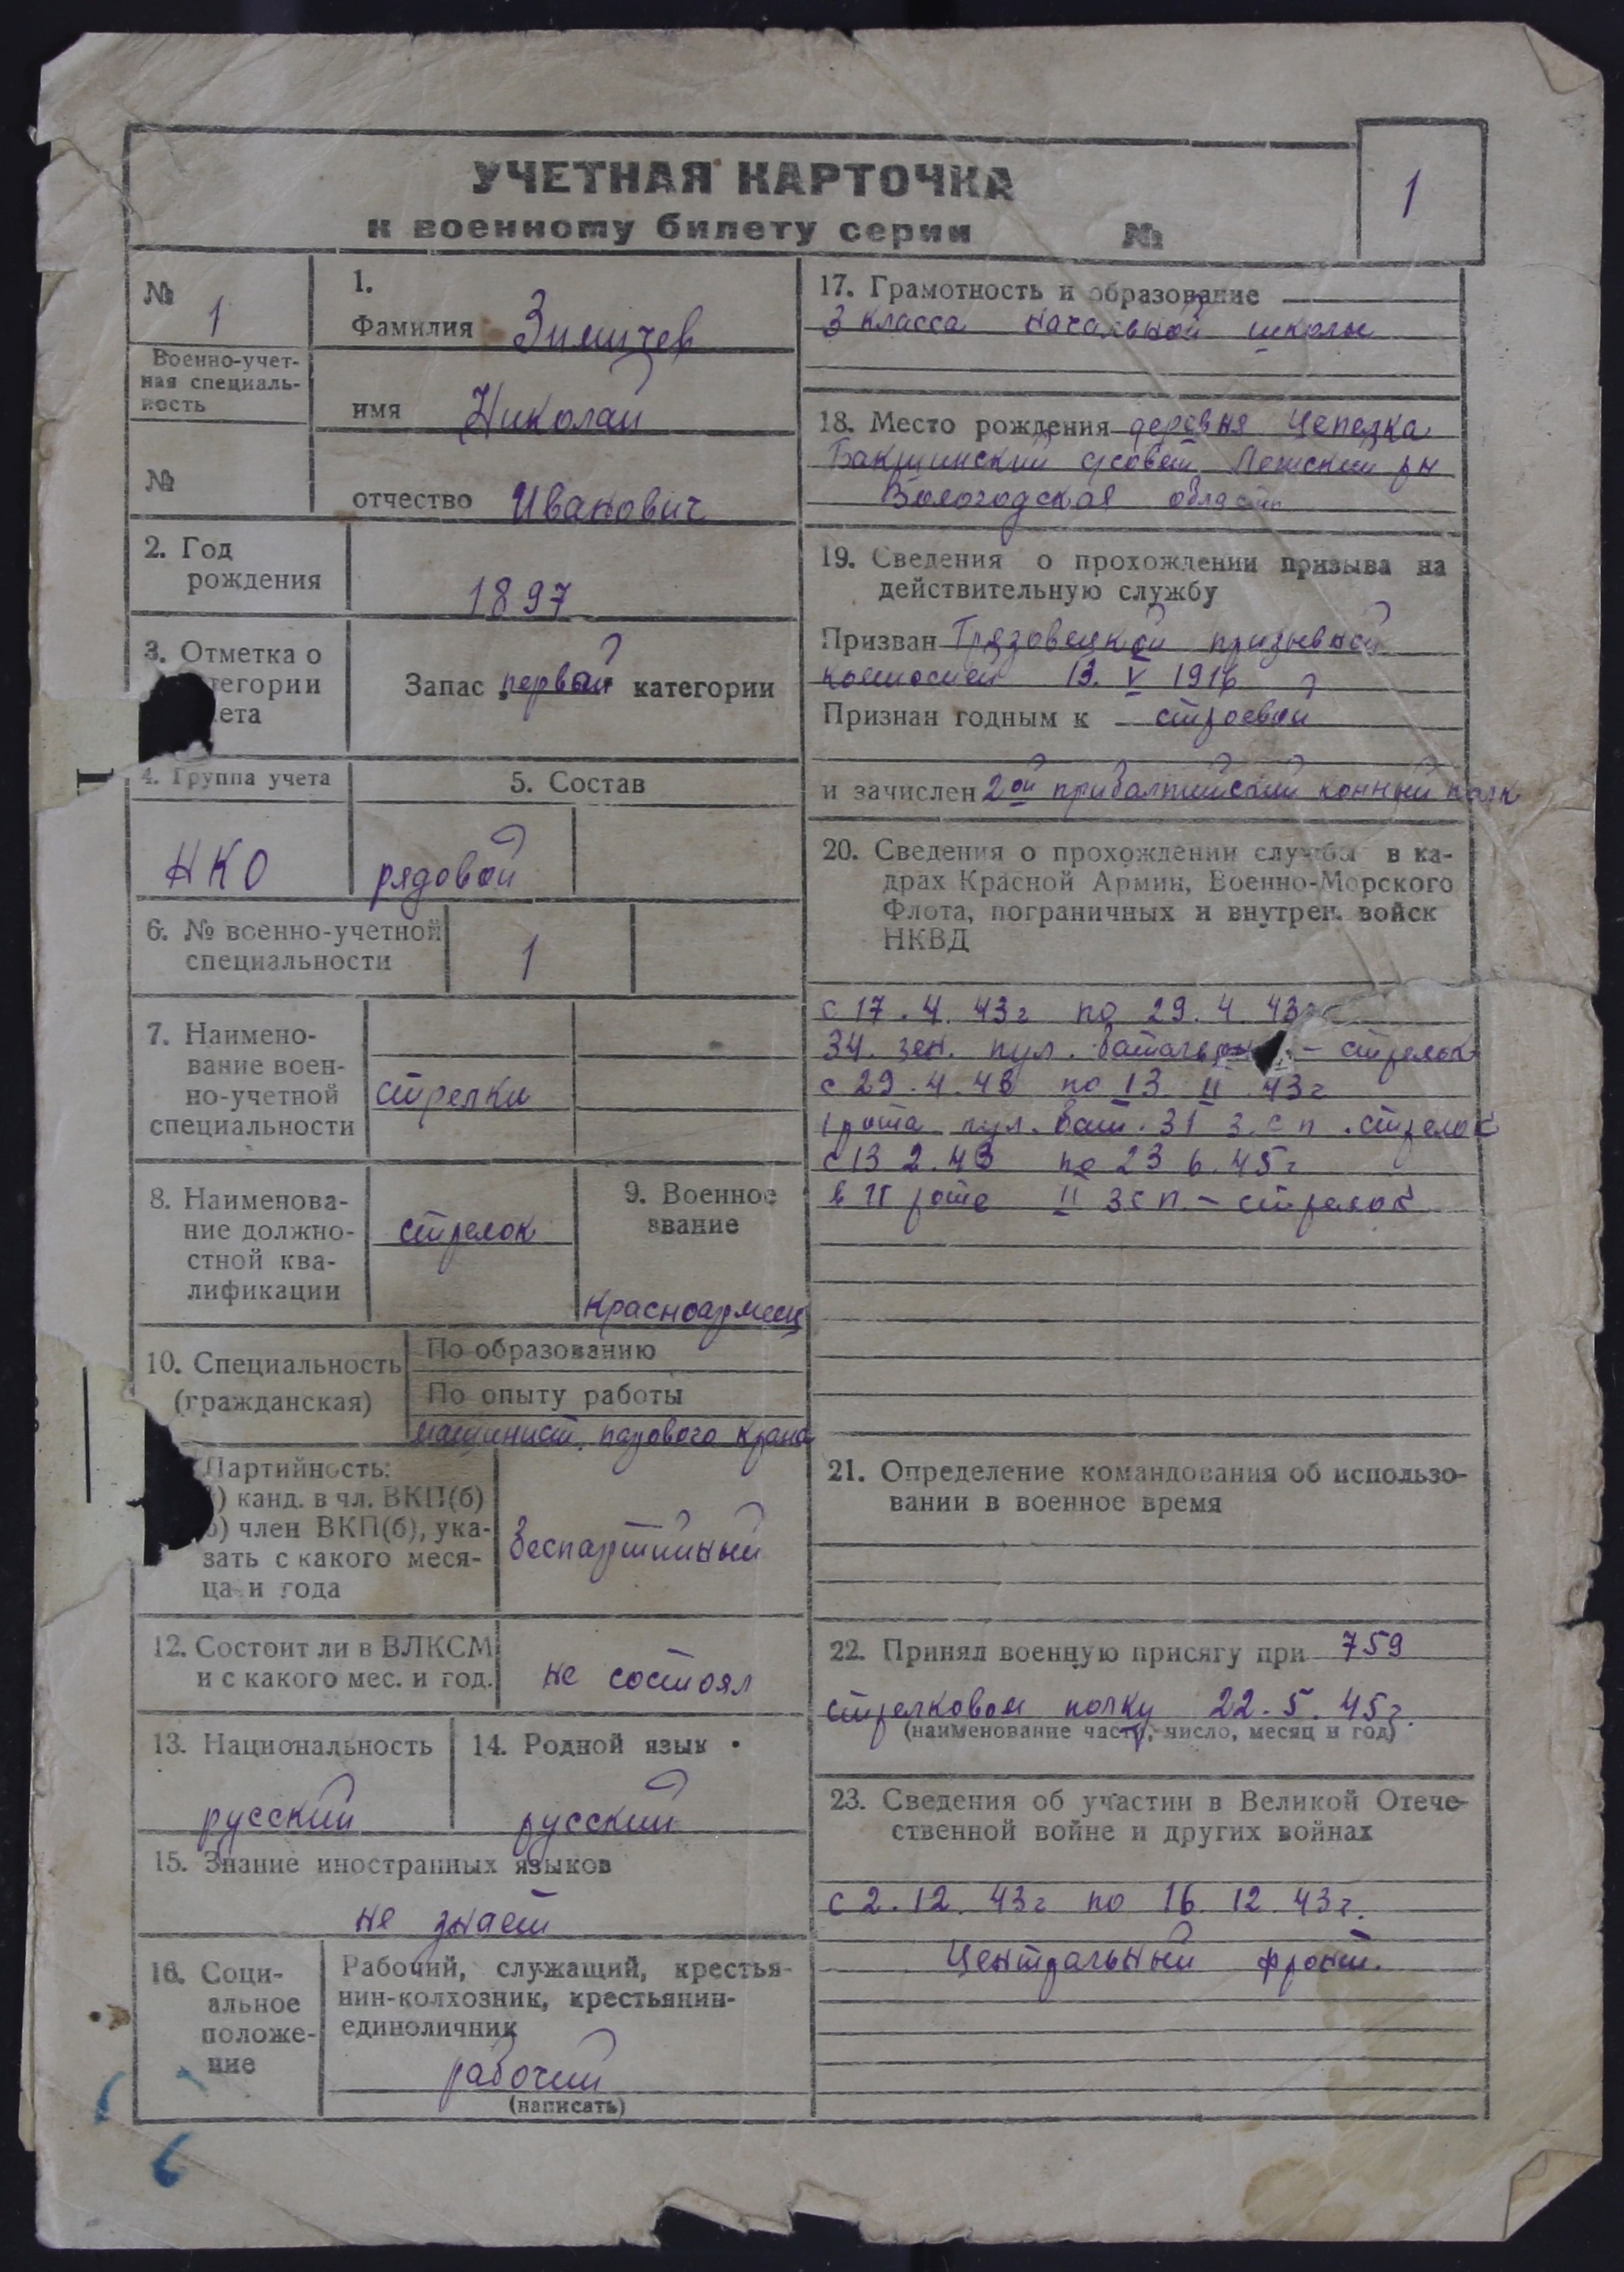 УЧЕТНАЯ КАРТОЧКА
к военному билету серии №
1
№ 1
Военно-учет-
ная специаль-
ность
№
1.
Фамилия Зимичев
имя Николай
отчество Иванович
2. Год
рождения
1897
3. Отметка о
тегории
ета
Запас первой категории
4. Группа учета
НКО
5. Состав
рядовой
6. № военно-учетной
специальности
1
7. Наимено-
вание воен-
но-учетной
специальности
стрелки
8. Наименова-
ние должно-
стной ква-
лификации
стрелок
9. Военное
звание
красноармеец
10. Специальность
(гражданская)
По образованию
По опыту работы
машинист парового крана
Партийность:
) канд. в чл. ВКП(б)
б) член ВКП(б), ука-
зать с какого меся-
ца и года
беспартийный
12. Состоит ли в ВЛКСМ
и с какого мес. и год.
не состоял
13. Национальность
русский
14. Родной язык
русский
15. Знание иностранных языков
не знает
16. Соци-
альное
положе-
ние
Рабочий, служащий, крестья-
нин-колхозник, крестьянин-
единоличник
рабочий
(написать)
17. Грамотность и образование
3 класса начальной школы
18. Место рождения деревня
с/совет рн
Вологодская область
19. Сведения о прохождении призыва на
действительную службу
Призван Грязовецкой призывной
комиссией 13. V 1916
Признан годным к строевой
и зачислен 2ой прибалтийский конный полк
20. Сведения о прохождении службы в ка-
драх Красной Армии, Военно-Морского
Флота, пограничных и внутрен. войск
НКВД
с 17. 4. 43г по 29. 4. 43
34. зен. пул. батальон - стрелок
с 29. 4. 43 по 13. II. 43г
1 рота пул. бат. 31 з. с п. стрелок
с 13 2. 43 по 23 6. 45г
в роте II зсп. - стрелок
21. Определение командования об использо-
вании в военное время
22. Принял военную присягу при 759
стрелковом полку 22. 5. 45г.
(наименование части, число, месяц и год)
23. Сведения об участии в Великой Отече-
ственной войне и других войнах
с 2. 12. 43г по 16. 12. 43г.
Центральный фронт.